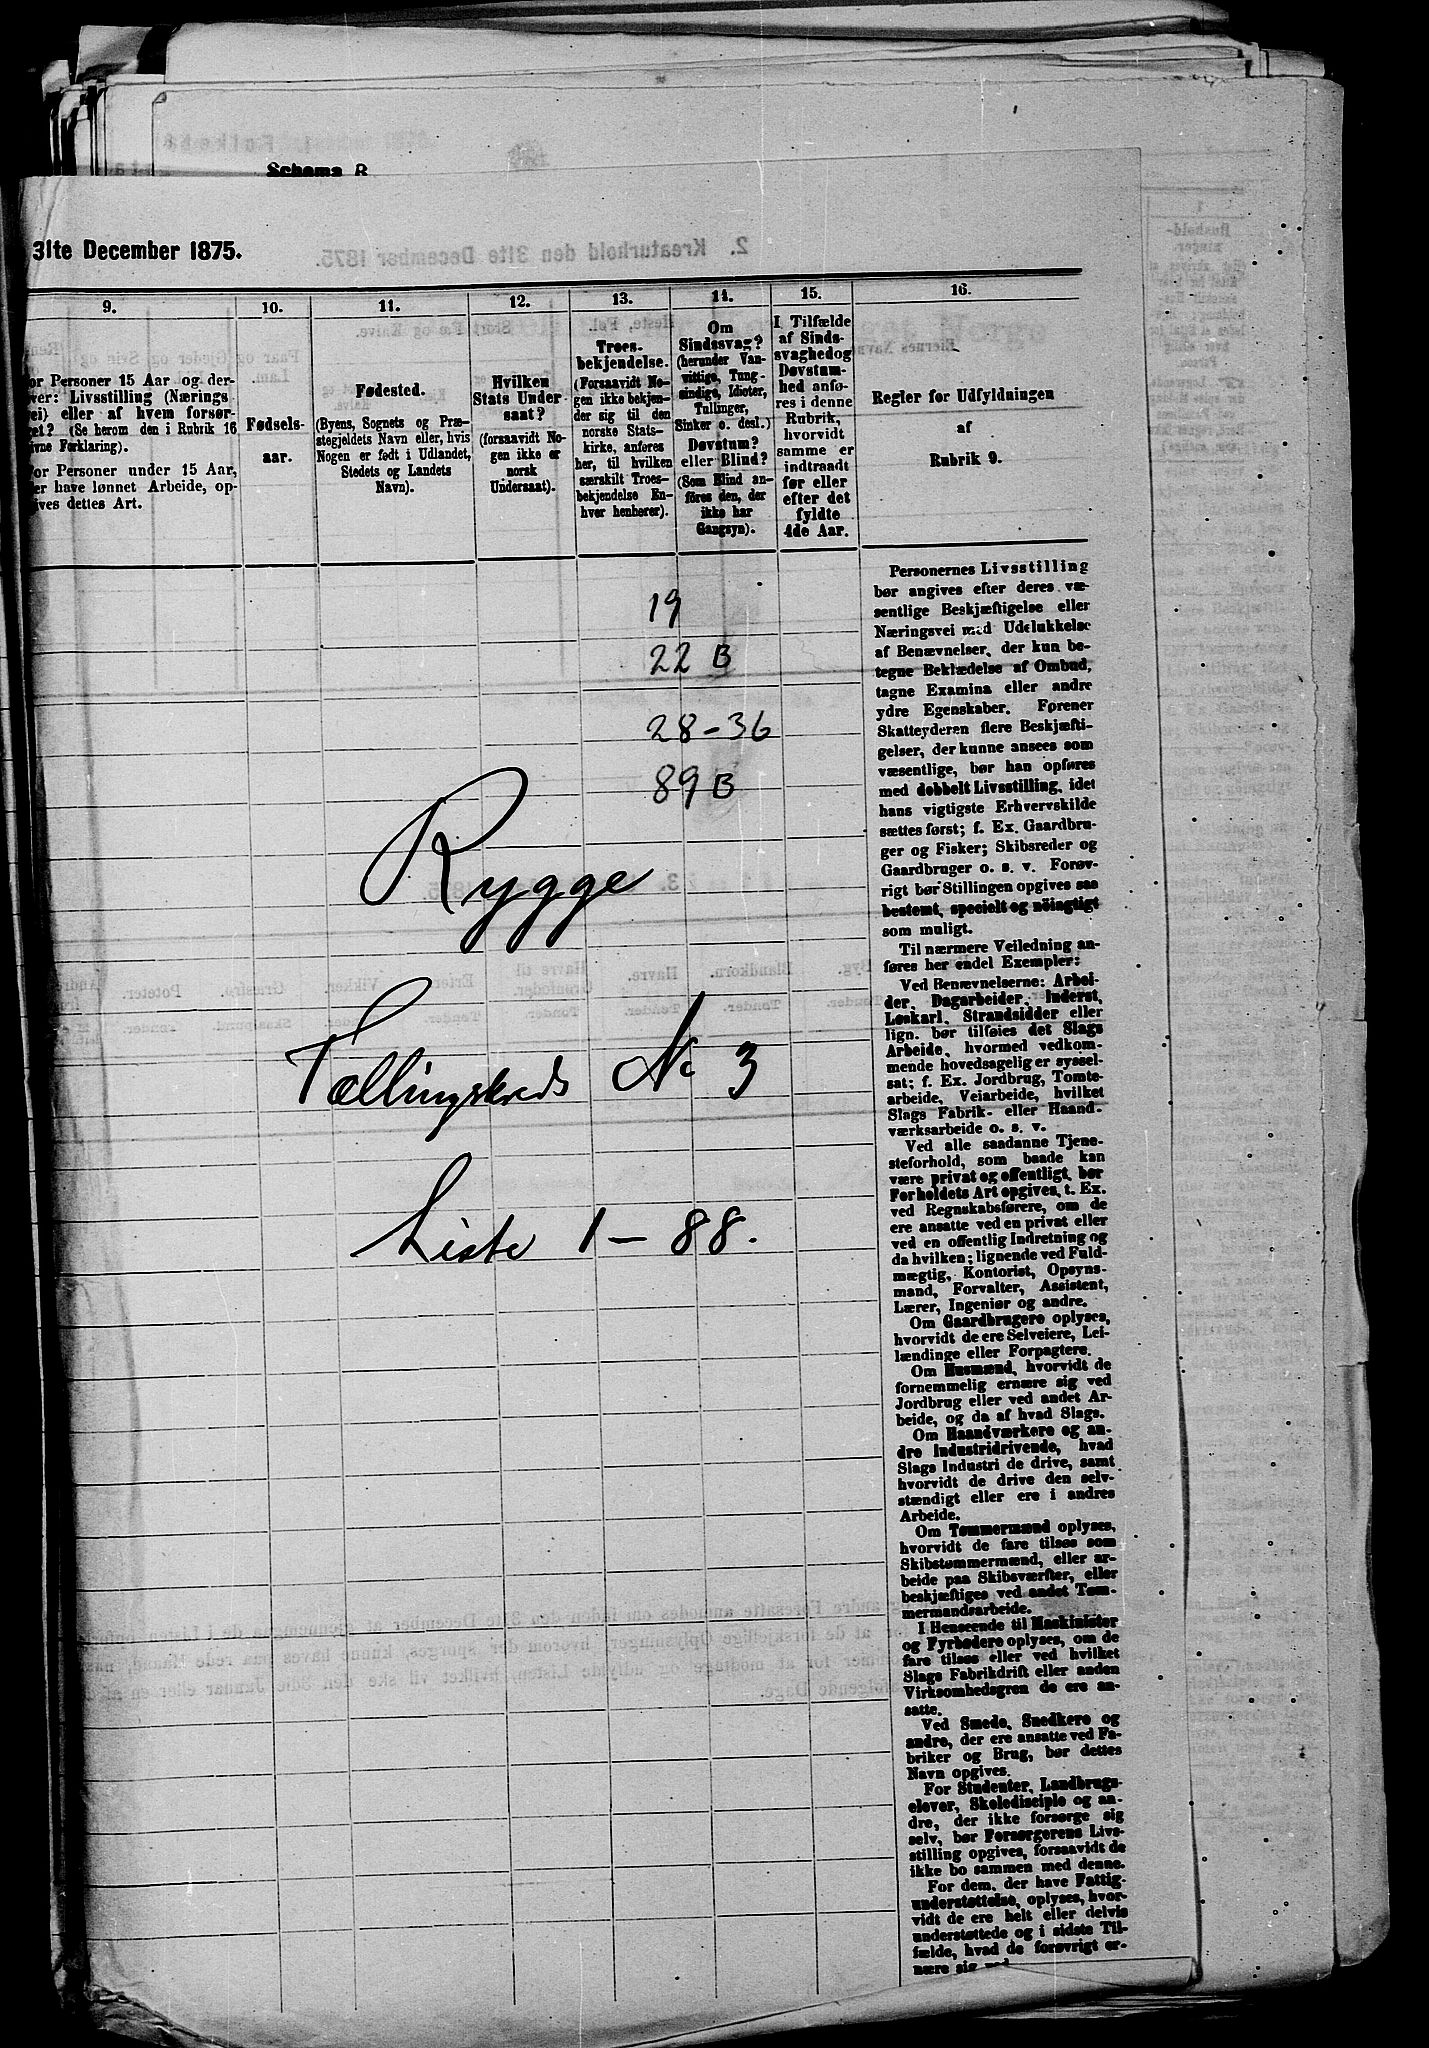 Schema B
31te December 1875.
2. Kreaturhold den 31te December 1875.
9.
10.
11.
12.
13.
14.
15.
16.
or Personer 15 Aar og der-
ver: Livsstilling (Nærings
vei) eller af hvem forsør-
get? (Se herom den i Rubrik 16
ivne Forklaring).
or Personer under 15 Aar,
er have lønnet Arbeide, op-
gives dettes Art.
Fødsels-
aar.
Fødested.
(Byens, Sognets og Præ-
stegjeldets Navn eller, hvis
Nogen er født i Udlandet,
Stedets og Landets
Navn).
Hvilken
Stats Under-
saat?
(forsaavidt No-
gen ikke er
norsk
Undersaat).
Troes-
bekjendelse.
(Forsaavidt No-
gen ikke bekjen-
der sig til den
norske Stats-
kirke, anføres
her, til hvilken
særskilt Troes-
bekjendelse En-
hver henhører).
Om
Sindssvag?
(herunder Van-
vittige, Tung-
sindige, Idioter,
Tullinger,
Sinker o. desl.)
Døvstum?
eller Blind?
(Som Blind an-
føres den, der
ikke har
Gangsyn).
I Tilfælde
af Sinds-
svaghed og
Døvstum-
hed anfø-
res i denne
Rubrik,
hvorvidt
samme er
indtraadt
før eller
efter det
fyldte
4de Aar.
Regler for Udfyldningen
af
Rubrik 9.
19
22 B
28-36
89 B
Rygge
Tællingskreds No 3
Liste 1-88.
Personernes Livsstilling
bør angives efter deres væ-
sentlige Beskjæftigelse eller
Næringsvei med Udelukkelse
af Benævnelser, der kun be-
tegne Beklædelse af Ombud,
tagne Examina eller andre
ydre Egenskaber. Forener
Skatteyderen flere Beskjæfti-
gelser, der kunne ansees som
væsentlige, bør han opføres
med dobbelt Livsstilling, idet
hans vigtigste Erhvervskilde
sættes først; f. Ex. Gaardbru-
ger og Fisker; Skibsreder og
Gaardbruger o. s. v. Forøv-
rigt bør Stillingen opgives saa
bestemt, specielt og nöiagtigt
som muligt.
Til nærmere Veiledning an-
føres her endel Exempler:
Ved Benævnelserne: Arbei-
der, Dagarbeider, Inderst,
Løskarl, Strandsidder eller
lign. bør tilføies det Slags
Arbeide, hvormed vedkom-
mende hovedsagelig er syssel-
sat; f. Ex. Jordbrug, Tomte-
arbeide, Veiarbeide, hvilket
Slags Fabrik- eller Haand-
værksarbeide o. s. v.
Ved alle saadanne Tjene-
steforhold, som baade kan
være privat og offentligt, bør
Forholdets Art opgives, t. Ex.
ved Regnskabsførere, om de
ere ansatte ved en privat eller
ved en offentlig Indretning og
da hvilken; lignende ved Fuld-
mægtig, Kontorist, Opsyns-
mand, Forvalter, Assistent,
Lærer, Ingeniør og andre.
Om Gaardbrugere oplyses,
hvorvidt de ere Selveiere, Lei-
lændinge eller Forpagtere.
Om Husmænd, hvorvidt de
fornemmelig ernære sig ved
Jordbrug eller ved andet Ar-
beide, og da af hvad Slags.
Om Haandværkere og an-
dre Industridrivende, hvad
Slags Industri de drive, samt
hvorvidt de drive den selv-
stændigt eller ere i andres
Arbeide.
Om Tømmermænd oplyses,
hvorvidt de fare tilsøs som
Skibstømmermænd, eller ar-
beide paa Skibsværfter, eller
beskjæftiges ved andet Tøm-
mermandsarbeide.
I Henseende til Maskinister
og Fyrbødere oplyses, om de
fare tilsøs eller ved hvilket
Slags Fabrikdrift eller anden
Virksomhedsgren de ere an-
satte.
Ved Smede, Snedkere og
andre, der ere ansatte ved Fa-
briker og Brug, bør dettes
Navn opgives.
For Studenter, Landbrugs-
elever, Skoledisciple og an-
dre, der ikke forsørge sig
selv, bør Forsørgerens Livs-
stilling opgives, forsaavidt de
ikke bo sammen med denne.
For dem, der have Fattig-
understøttelse, oplyses, hvor-
vidt de ere helt eller delvis
understøttede og i sidste Til-
fælde, hvad de forøvrigt er-
nære sig ved